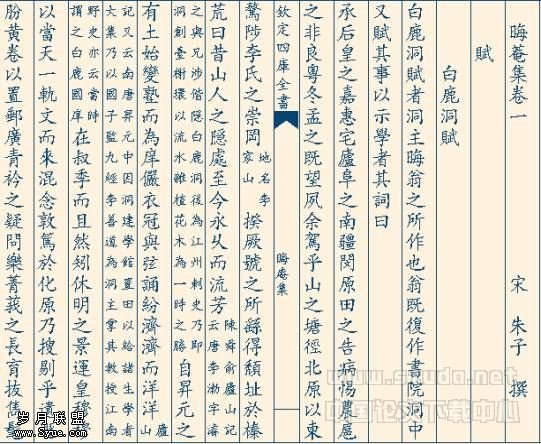 晦菴集卷一
宋 朱子 撰
賦
白鹿洞賦
白鹿洞賦者洞主晦翁之所作也翁既復作書院洞中
又賦其事以示學者其詞曰
承后皇之嘉惠宅廬阜之南疆閔原田之告病惕農扈
之非良粤冬孟之既望夙余駕乎山之塘徑北原以東
欽定四庫全書
晦菴集
騖陟李氏之崇岡 地名李家山 揆厥號之所繇得頽址於榛
荒曰昔山人之隱處至今永乆而流芳 陳舜俞廬山記云唐李渤字濬
之與兄涉偕隱白鹿洞後為江州刺史乃即洞創臺榭環以流水雜植花木為一時之勝 自昇元之
有土始變塾而為庠儼衣冠與弦誦紛濟濟而洋洋 廬山
記又云南唐昇元中因洞建學館置田以給諸生學者大集乃以國子監九經李善道為洞主掌其教授江南
野史亦云當時謂之白鹿國庠 在叔季而且然矧休明之景運皇穆穆
以當天一軌文而來混念敦篤於化原乃搜剔乎遺
肦黄卷以置郵廣青衿之疑問樂菁莪之長育拔雋髦
岁月联盟
www.Syue.com